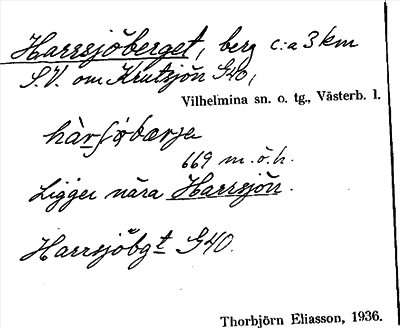 Harrsjöberget, berg c:a 3 km
S.V. om Krutsjön G40,
Vilhelmina sn. o. tg., Västerb. l.
669 m.ö.h.
Ligger nära Harrsjön.
Harrsjöbgt G40.
Thorbjörn Eliasson, 1936.